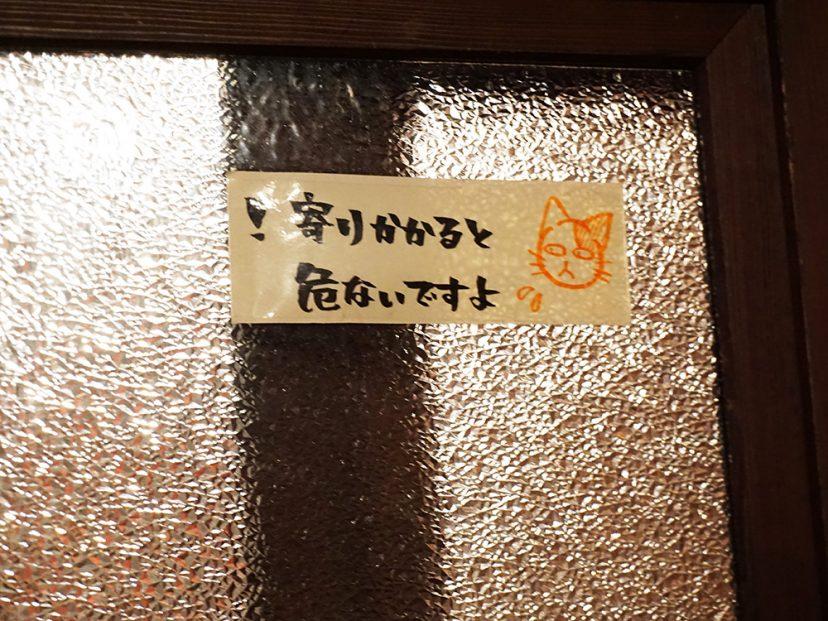 ！寄りかかると
危ないですよ